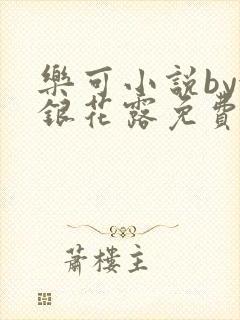 樂可小說by
銀花露免費
蕭樓主